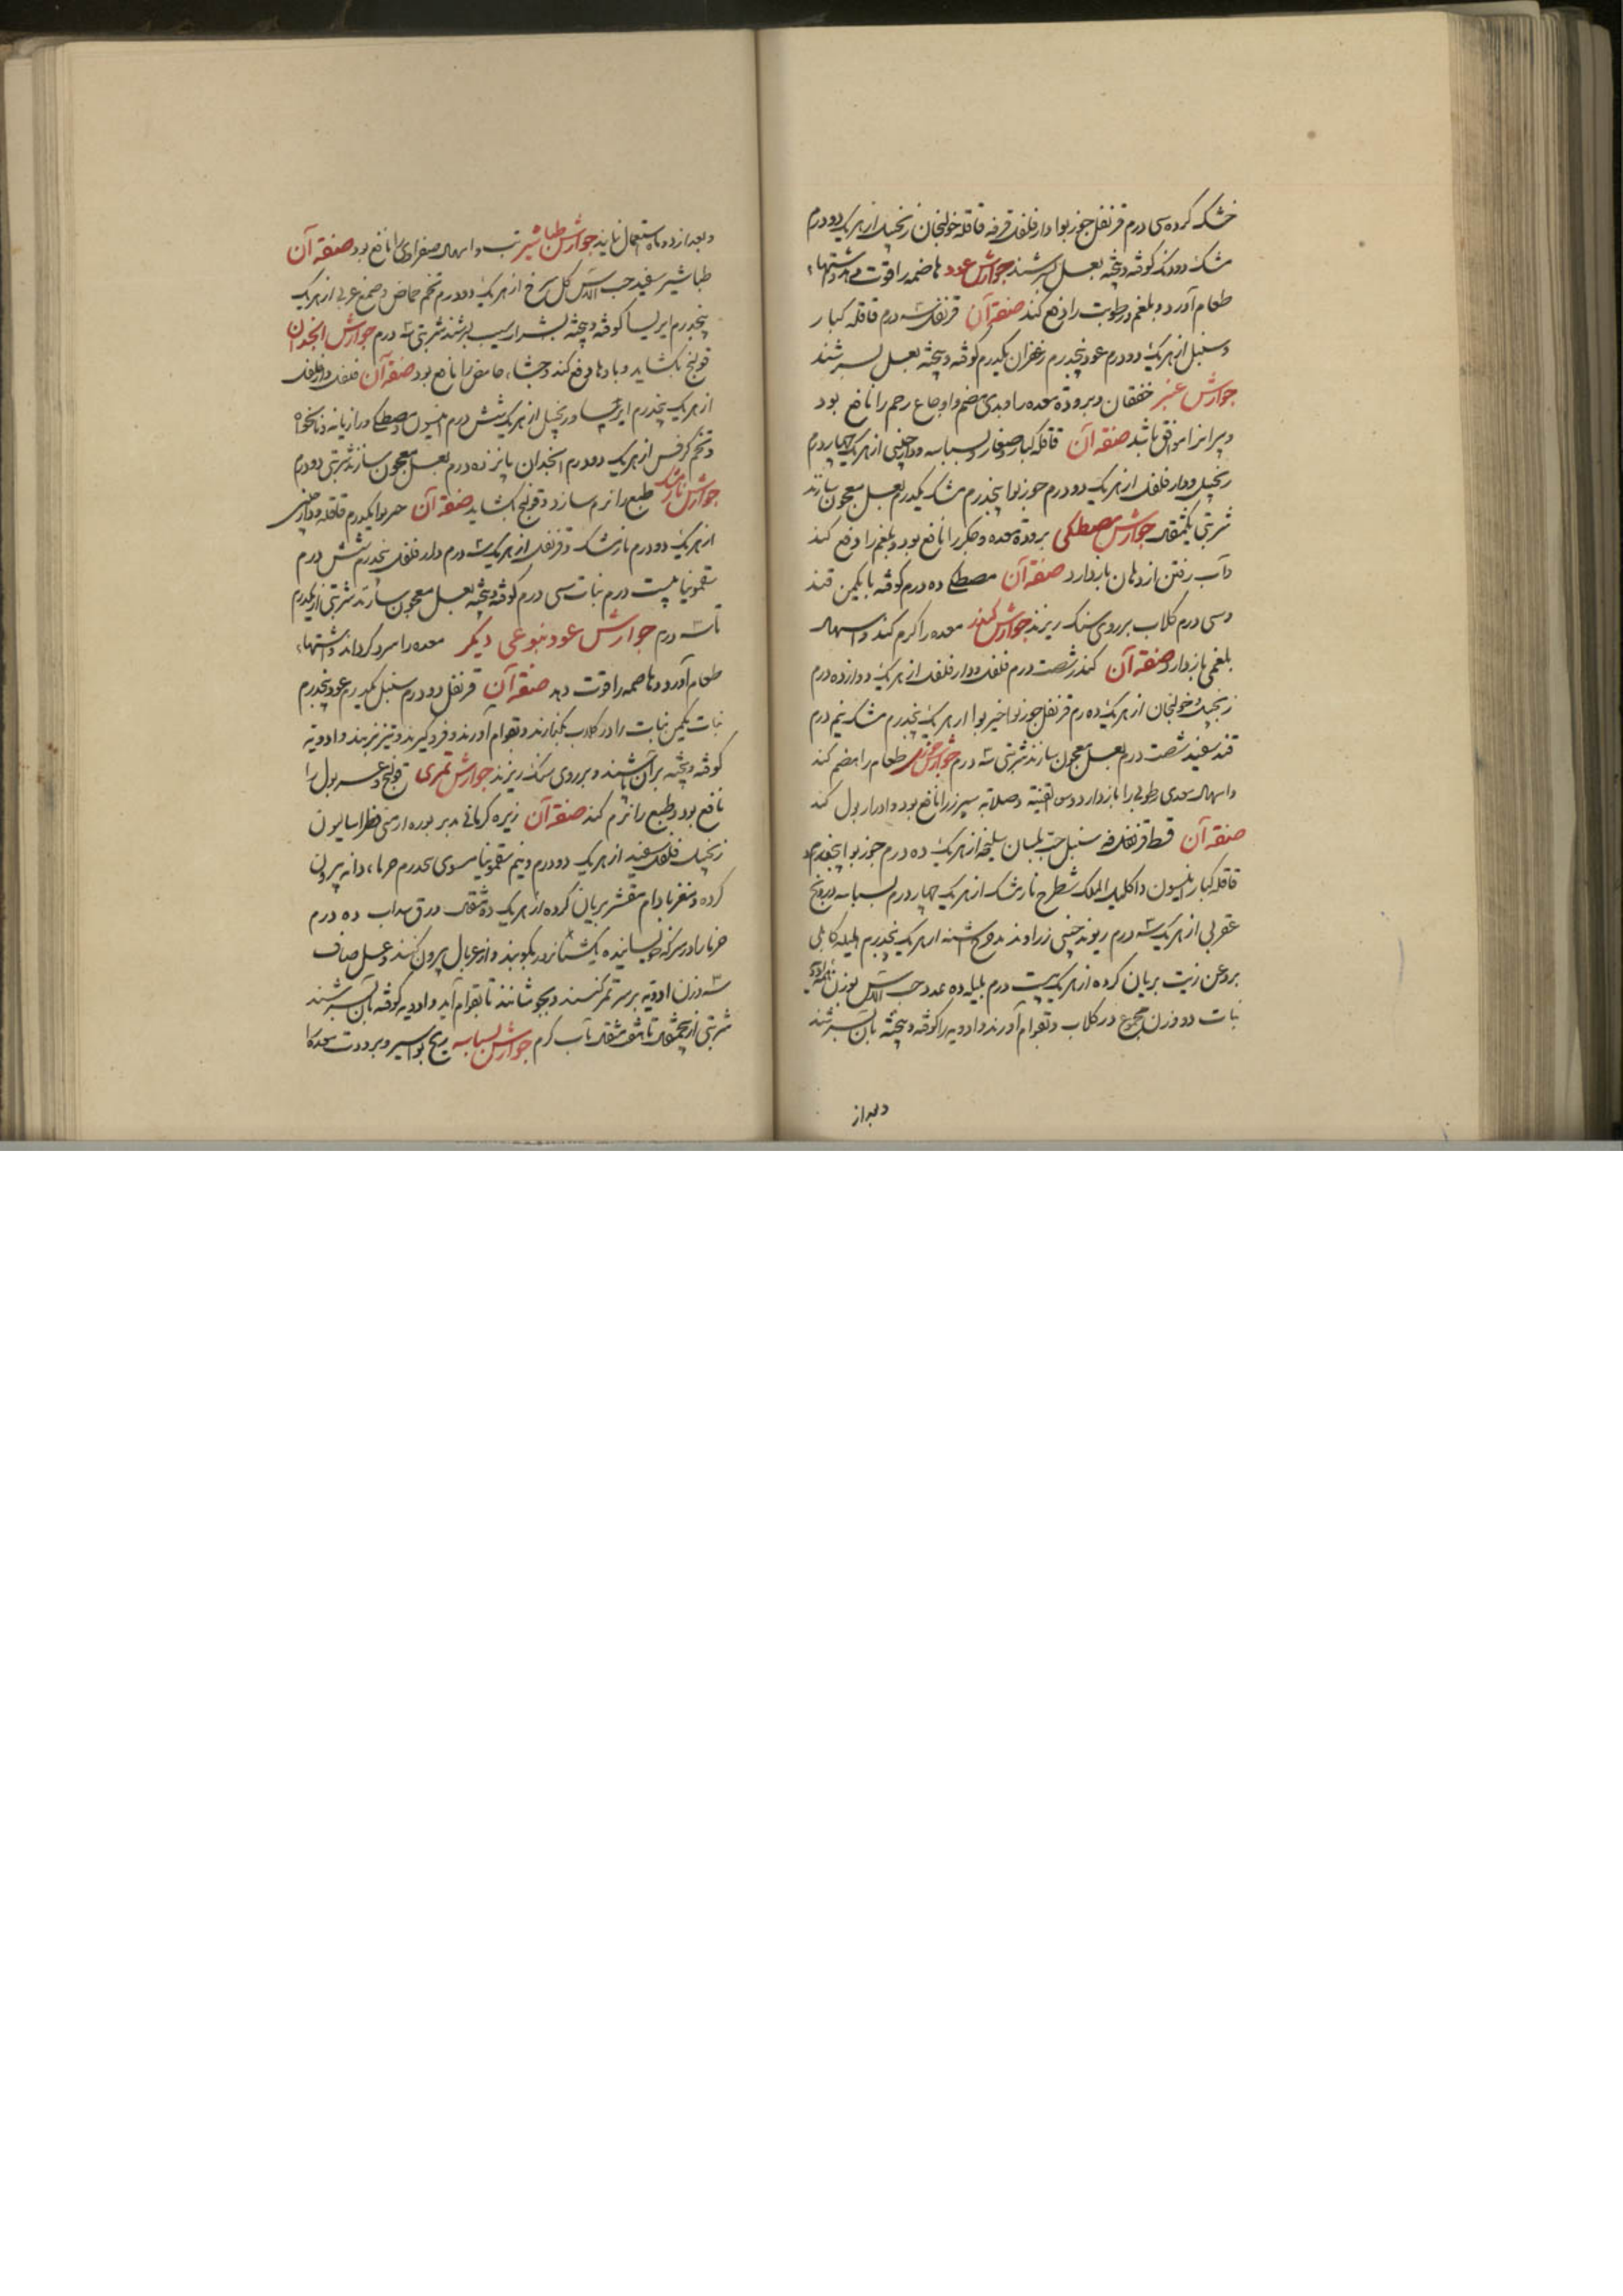 خشک کرده سی درم قرنفل جوزبوا دارفلفل قرفه قاقله خولنجان زنجبیل از هریک دو درم
مشک دودنک کوفته و بیخته بعسل بسرشند جوارش عود هاضمه را قوت دهد و اشتهاء
طعام آورد و بلغم و رطوبت را دفع کند صنعة آن قرنفل سه درم قاقله کبار
و سنبل از هریک دو درم عود پنجدرم زعفران یکدرم کوفته و بیخته بعسل بسرشند
جوارش عنبر خفقان و برودة معده را و بدی هضم و اوجاع رحم را نافع بود
و پیرانرا موافق باشد صنعة آن قاقله کبار و صغار و بسباسه و دارچینی از هریک چهار درم
زنجبیل و دارفلفل از هریک دو درم جوزبوا پنجدرم مشک یکدرم بعسل معجون سازند
شربتی یکمثقال جوارش مصطکی برودة معده و جکر را نافع بود و بلغم را دفع کند
و آب رفتن از دهان باز دارد صنعة آن مصطکی ده درم کوفته با یکمن قند
و سی درم کلاب بر روی سنک ریزند جوارش کندر معده را کرم کند و اسهال
بلغمی باز دارد صنعة آن کندر شصت درم فلفل و دارفلفل از هریک دوازده درم
زنجبیل و خولنجان از هریک ده درم قرنفل جوزبوا خیربوا از هریک پنجدرم مشک نیم درم
قند سفید شصت درم بعسل معجون سازند شربتی سه درم جوارش طعام را هضم کند
و اسهال معدی رطوبی را باز دارد و سوء القنیه و صلابة سپرز را نافع بود و ادرار بول کند
صنعة آن قسط قرنفل قرفه سنبل حب بلسان سلیخه از هریک ده درم جوزبوا پنجدرم
قاقله کبار انیسون و اکلیل الملک شطرج نارمشک از هریک چهار درم بسباسه درونج
عقربی از هریک سه درم ریوند چینی زراوند مدحرج اشنه از هریک پنجدرم هلیله کابلی
بروغن زیت بریان کرده از هریک بیست درم بلیله ده عدد حب الاس بوزن همه ادویه
نبات دو وزن مجموع در کلاب و بقوام آورند و ادویه را کوفته و بیخته بآن بسرشند
و بعد از
و بعد از دو ماه استعمال نمایند جوارش طباشیر تب و اسهال صفراوی را نافع بود صنعة آن
طباشیر سفید حب الاس کل سرخ از هریک دو درم تخم حماض و صمغ عربی از هریک
پنجدرم ایرسا کوفته و بیخته بشراب سیب بسرشند شربتی سه درم جوارش انجدان
قولنج بکشاید و بادها دفع کند و جشاء حامض را نافع بود صنعة آن فلفل و دارفلفل
از هریک پنجدرم ایرسا و زنجبیل از هریک شش درم انیسون و مصطکی و رازیانه و نانخواه
و تخم کرفس از هریک دو درم انجدان پانزده درم بعسل معجون سازند شربتی دو درم
جوارش نارمشک طبع را نرم سازد و قولنج بکشاید صنعة آن خیربوا یکدرم قاقله و دارچینی
از هریک دو درم نارمشک و قرنفل از هریک سه درم دارفلفل پنجدرم شش درم
سقمونیا بیست درم نبات سی درم کوفته و بیخته بعسل معجون سازند شربتی از یکدرم
تا سه درم جوارش عود بنوعی دیکر معده را سرد کرداند و اشتهاء
طعام آورد و هاضمه را قوت دهد صنعة آن قرنفل دو درم سنبل یکدرم عود پنجدرم
نبات یکمن نبات را در کلاب بکدازند و بقوام آورند و فرو کیرند و نیز بزنند و ادویه
کوفته و بیخته بر آن پاشند و بر روی سنک ریزند جوارش تمری قولنج و عسر بول را
نافع بود و طبع را نرم کند صنعة آن زیره کرمانی مدبر بوره ارمنی فطراسالیون
زنجبیل فلفل سفید از هریک دو درم و نیم سقمونیا مسوی پنجدرم خرما دانه بیرون
کرده و مغز بادام مقشر بریان کرده از هریک ده مثقال ورق سداب ده درم
خرما را در سرکه خیسانیده یکشبانروز بکوبند و از غربال بیرون کنند و عسل صاف
سه وزن ادویه بر سر تمر کنند و بجوشانند تا بقوام آید و ادویه کوفته بآن بسرشند
شربتی از پنجمثقال تا شش مثقال بآب کرم جوارش بسباسه ریح بواسیر و برودت معده را